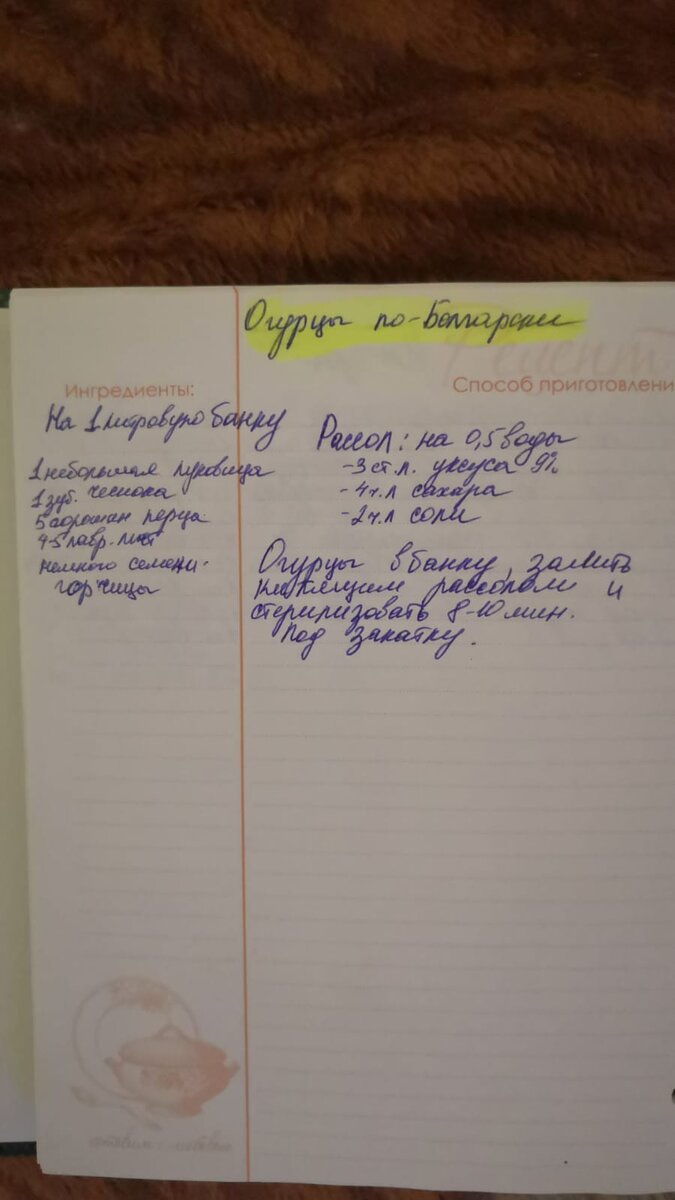 Огурцы по-Болгарски
Рецепт
Ингредиенты:
Способ приготовлени
На 1 литровую банку
1 небольшая луковица
1 зуб. чеснока
5 горошин перца
4-5 лавр. лист
немного семени
горчицы
Рассол: на 0,5 воды
-3 ст.л. уксуса 9%
-4 ч.л сахара
-2 ч.л соли
Огурцы в банку, залить
кипящим рассолом и
стерилизовать 8-10 мин.
Под закатку.
готовим с любовью